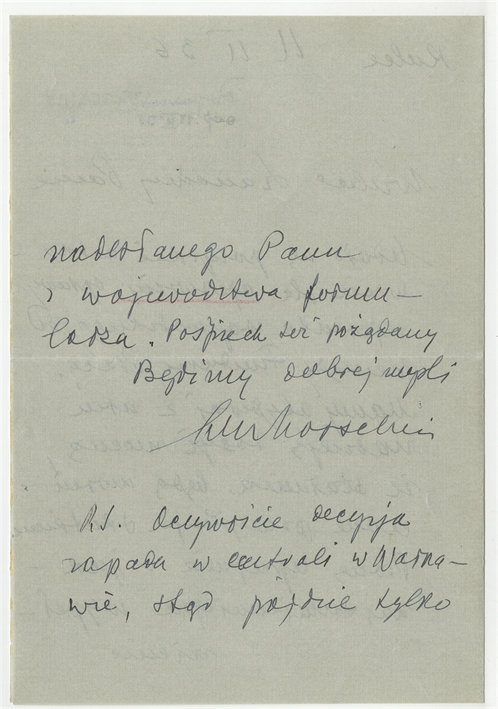 nadesłanego Panu
z województwa formu-
larza. Pośpiech też pożądany
Bądźmy dobrej myśli
PS. Oczywiście decyzja
zapada w centrali w Warsza-
wie, stąd pójdzie tylko